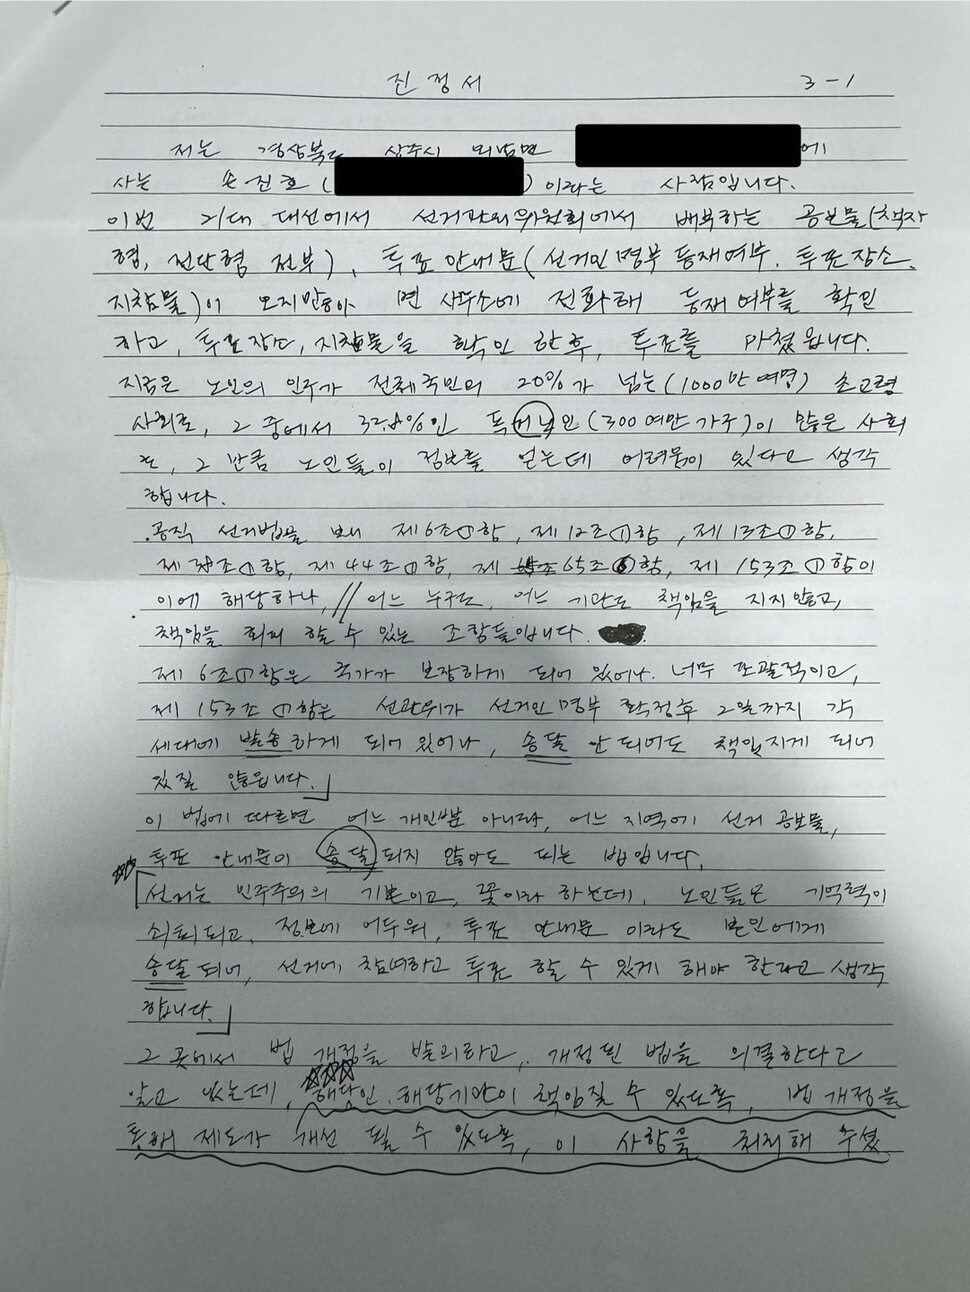 진정서 3-1
저는 경상북도 상주시 외남면 에
사는 손진호 ( ) 이라는 사람입니다.
이번 21대 대선에서 선거관리위원회에서 배부하는 공보물(책자
형, 전단형 전부), 투표 안내문(선거인 명부 등재여부, 투표장소,
지참물)이 오지않아 면 사무소에 전화해 등재 여부를 확인
하고, 투표장소, 지참물을 확인 한 후, 투표를 마쳤읍니다.
지금은 노인의 인구가 전체국민의 20%가 넘는(1000만 여명) 초고령
사회로, 그 중에서 32.8%인 독거노인(300여만 가구)이 많은 사회
로, 그 만큼 노인들이 정보를 얻는데 어려움이 있다고 생각
합니다.
공직 선거법을 보니 제6조①항, 제12조①항, 제13조①항,
제38조①항, 제44조①항, 제 65조⑥항, 제 153조①항이
이에 해당하나, // 어느 누구도, 어느 기관도 책임을 지지않고,
책임을 회피 할 수 있는 조항들입니다.
제 6조①항은 국가가 보장하게 되어 있어나 너무 포괄적이고,
제 153조 ①항은 선관위가 선거인 명부 확정후 2일까지 각
세대에 발송하게 되어 있어나, 송달 안 되어도 책임지게 되어
있질 않읍니다.」
이 법에 따르면 어느 개인뿐 아니라, 어느 지역에 선거 공보물,
투표 안내문이 송달되지 않아도 되는 법입니다.
「선거는 민주주의의 기본이고, 꽃이라 하는데, 노인들은 기억력이
쇠퇴되고, 정보에 어두워, 투표 안내문 이라도 본인에게
송달되어, 선거에 참여하고 투표 할 수 있게 해야 한다고 생각
합니다.」
그 곳에서 법 개정을 발의하고, 개정된 법을 의결한다고
알고 있는데, 해당인, 해당기관이 책임질 수 있도록, 법 개정을
통해 제도가 개선 될 수 있도록, 이 사항을 처리해 주셨